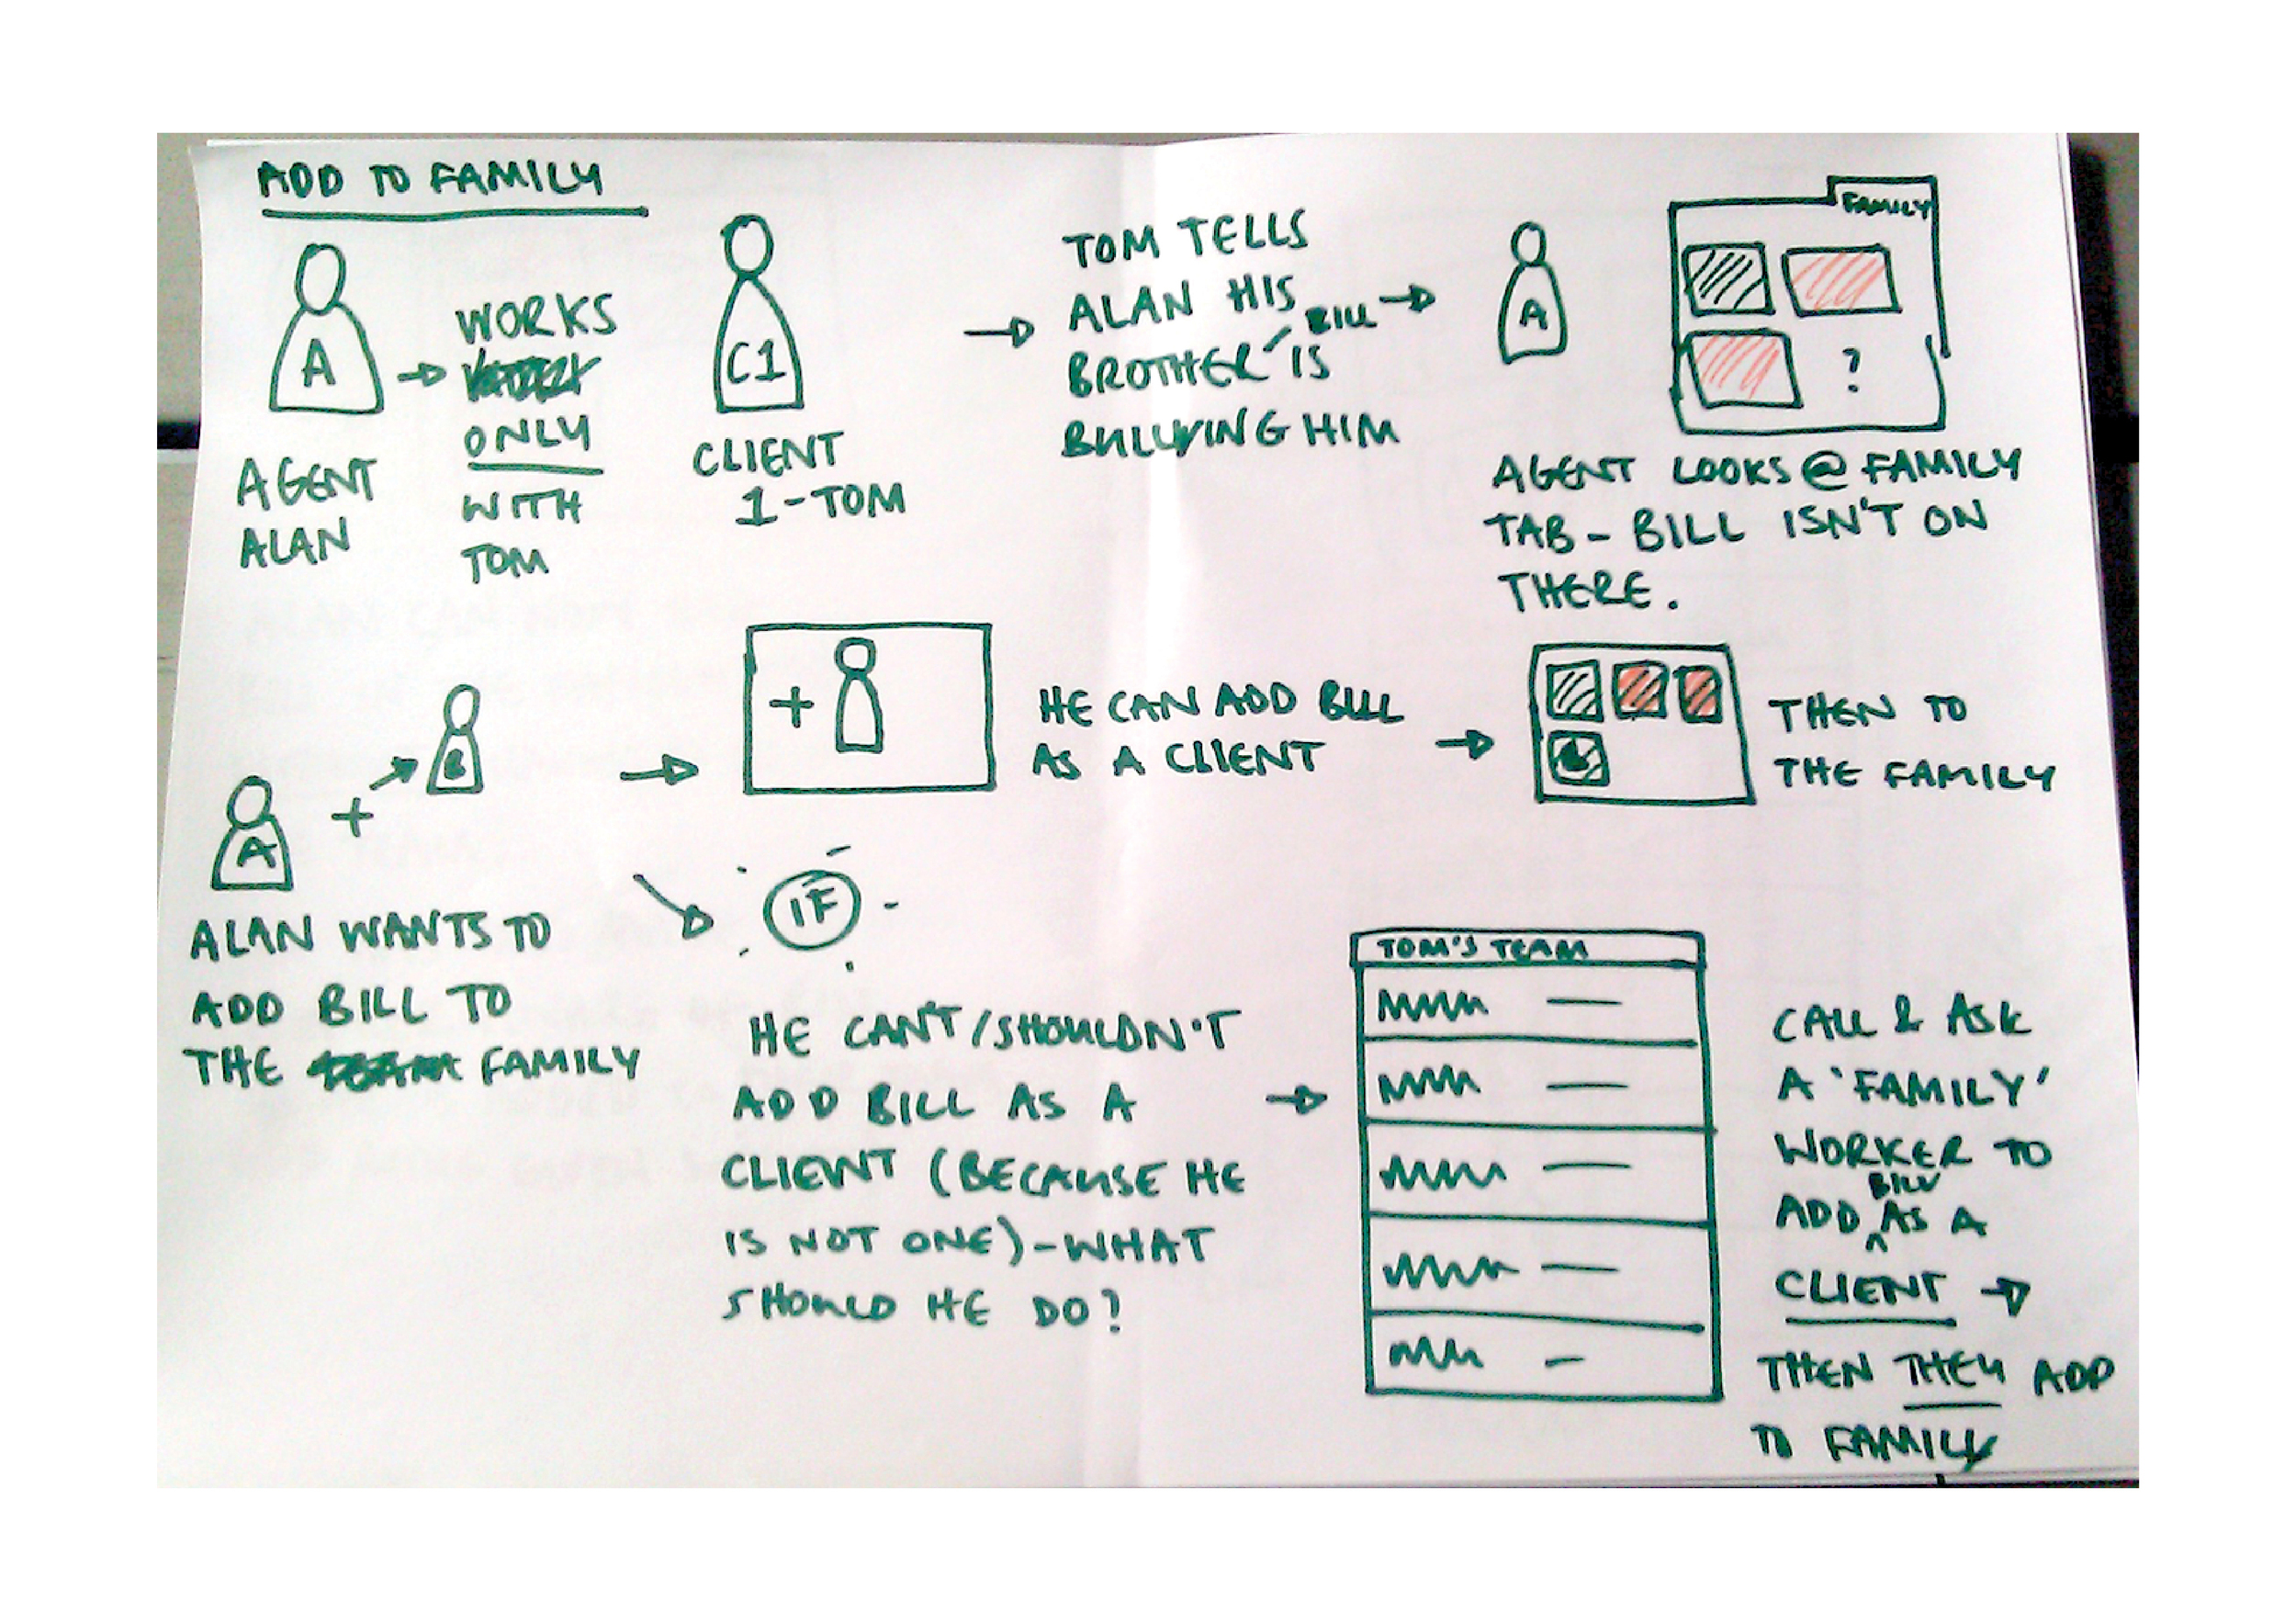 ADD TO FAMILY
A
AGENT
ALAN
WORKS
ONLY
WITH
TOM
C1
CLIENT
1-TOM
TOM TELLS
ALAN HIS
BROTHER BILL IS
BULLYING HIM
A
FAMILY
?
AGENT LOOKS @ FAMILY
TAB - BILL ISN'T ON
THERE.
A
+
B
ALAN WANTS TO
ADD BILL TO
THE FAMILY
+
HE CAN ADD BILL
AS A CLIENT
THEN TO
THE FAMILY
IF
HE CAN'T/SHOULDN'T
ADD BILL AS A
CLIENT (BECAUSE HE
IS NOT ONE) - WHAT
SHOULD HE DO?
TOM'S TEAM
CALL & ASK
A 'FAMILY'
WORKER TO
ADD BILL AS A
CLIENT
THEN THEY ADD
TO FAMILY